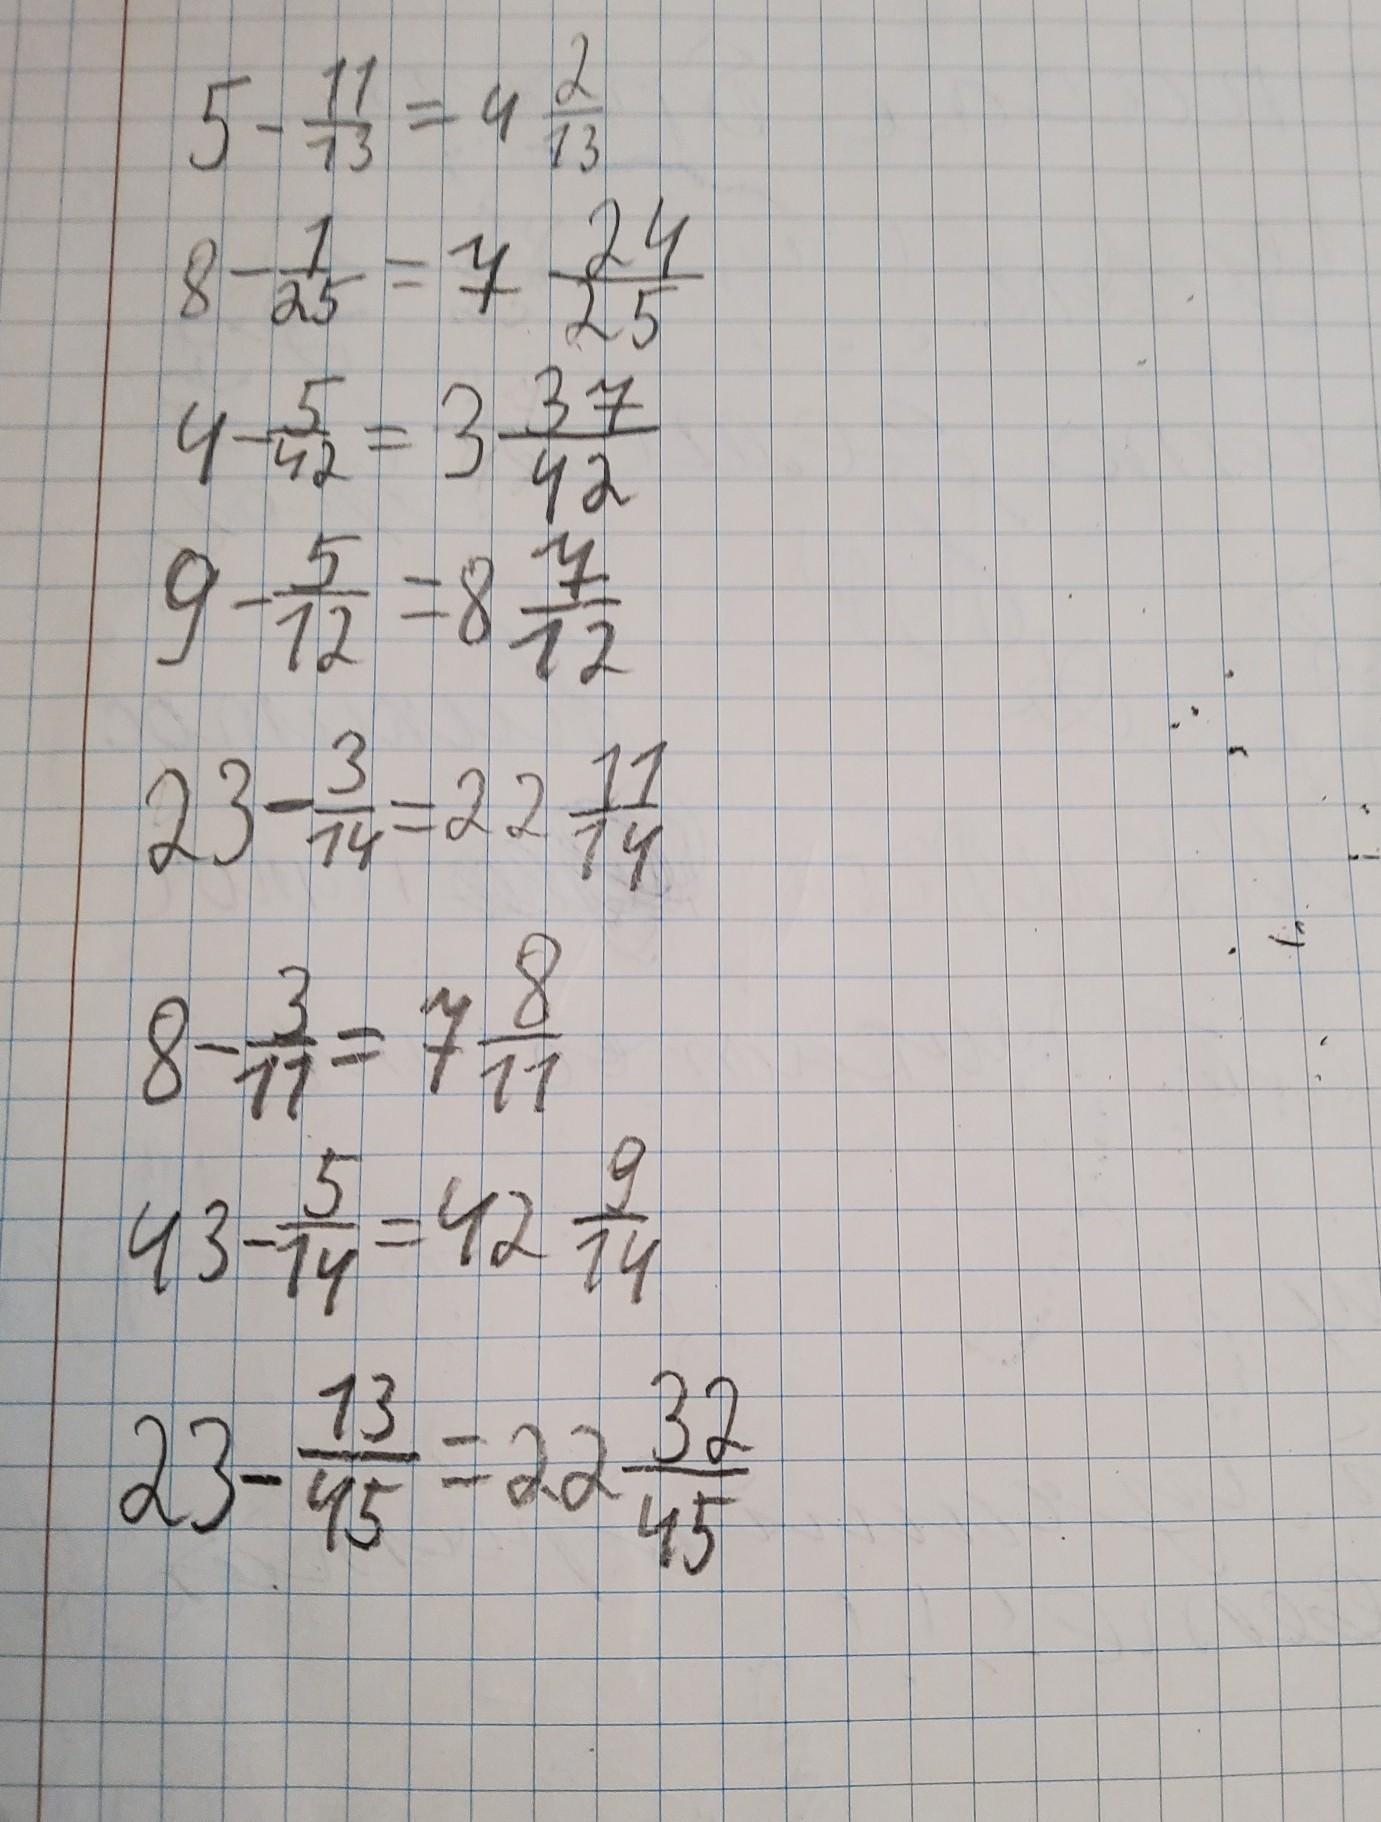 5 - 11/13 = 4 2/13
8 - 1/25 = 7 24/25
4 - 5/42 = 3 37/42
9 - 5/12 = 8 7/12
23 - 3/14 = 22 11/14
8 - 3/11 = 7 8/11
43 - 5/14 = 42 9/14
23 - 13/45 = 22 32/45